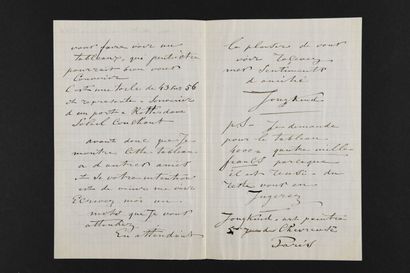 vous faire voir un
tableaux, que peut être
pourrait bien vous
Convenir
C'est une toile de 43 sur 56
et represente, Souvenir
d'un port a Rotterdam
Soleil Couchant
avant donc que je
montre cette tableau
a d'autres amis
et si votre intention
est de venir me voir
Ecrivez moi un
mots que je vous
attendez
En attendant
le plaisir de vous
voir Recevez
mes Sentiments
d'amitié
Jongkind
p.s. Je demande
pour le tableau
4000 quatre mille
francs parceque
il est réussi. du
reste vous en
Jugerez
Jongkind. art. peintre
5 rue de Chevreuse
Paris